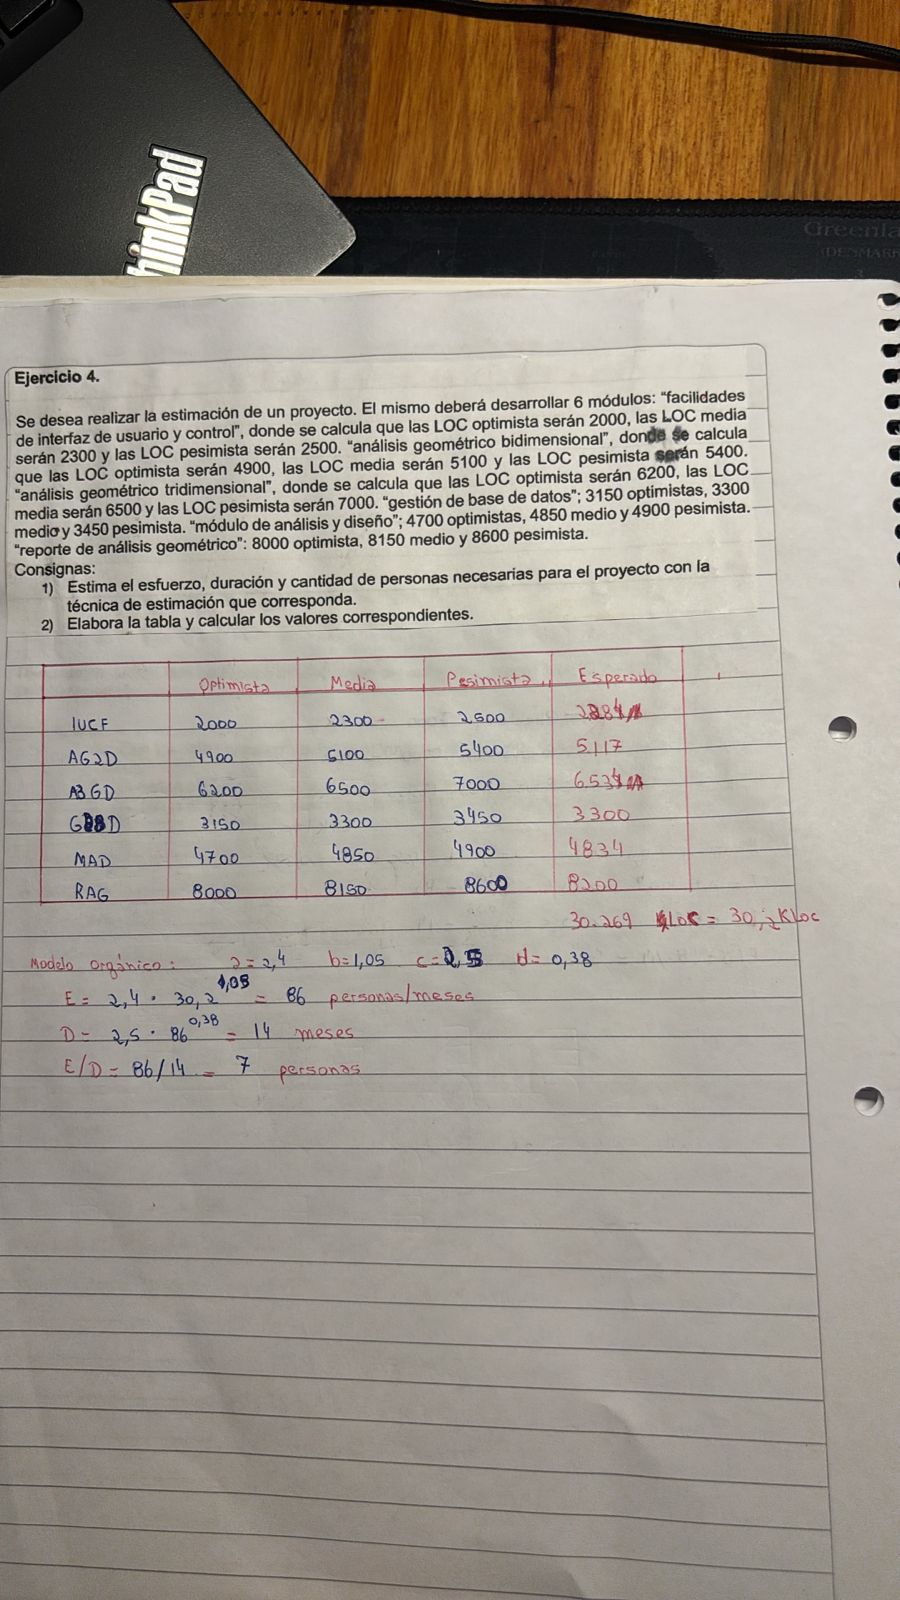 ThinkPad
Greenla
(DENMARK
3
Ejercicio 4.
Se desea realizar la estimación de un proyecto. El mismo deberá desarrollar 6 módulos: “facilidades
de interfaz de usuario y control”, donde se calcula que las LOC optimista serán 2000, las LOC media
serán 2300 y las LOC pesimista serán 2500. “análisis geométrico bidimensional”, donde se calcula
que las LOC optimista serán 4900, las LOC media serán 5100 y las LOC pesimista serán 5400.
“análisis geométrico tridimensional”, donde se calcula que las LOC optimista serán 6200, las LOC
media serán 6500 y las LOC pesimista serán 7000. “gestión de base de datos”; 3150 optimistas, 3300
medio y 3450 pesimista. “módulo de análisis y diseño”; 4700 optimistas, 4850 medio y 4900 pesimista.
“reporte de análisis geométrico”: 8000 optimista, 8150 medio y 8600 pesimista.
Consignas:
1) Estima el esfuerzo, duración y cantidad de personas necesarias para el proyecto con la
técnica de estimación que corresponda.
2) Elabora la tabla y calcular los valores correspondientes.
Optimista Media Pesimista Esperado
IUCF 2000 2300 2500 2284
AG2D 4900 5100 5400 5117
A3GD 6200 6500 7000 6.534
GBD 3150 3300 3450 3300
MAD 4700 4850 4900 4834
RAG 8000 8150 8600 8200
30.269 LOC = 30,2 KLOC
Modelo orgánico: a=2,4 b=1,05 c=2,5 d=0,38
E = 2,4 · 30,2^1,05 = 86 personas/meses
D = 2,5 · 86^0,38 = 14 meses
E/D = 86/14 = 7 personas